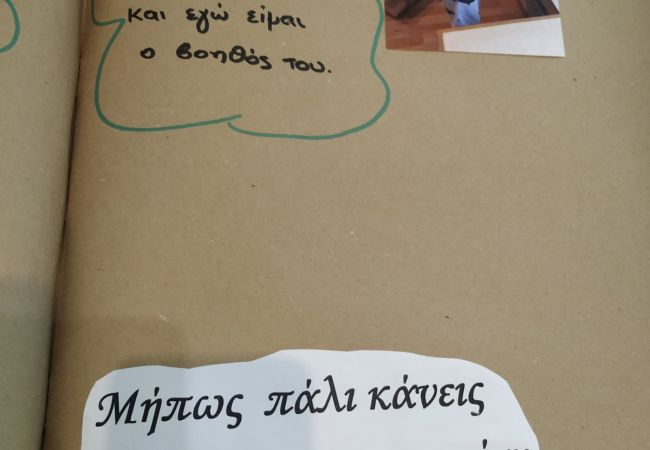 και εγώ είμαι
ο βοηθός του.
Μήπως πάλι κάνεις